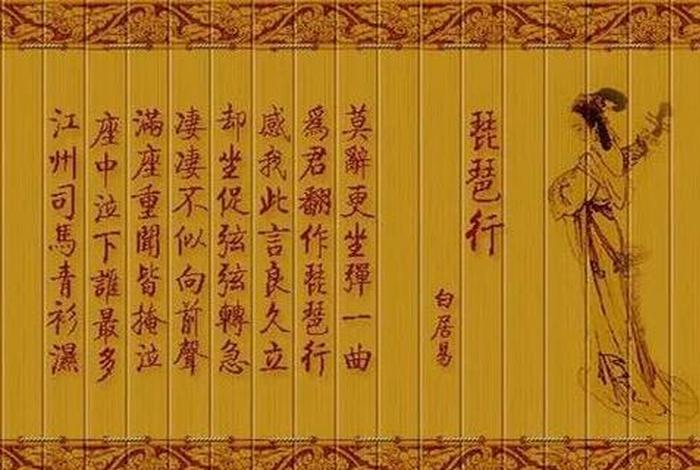 琵琶行
白居易
莫辭更坐彈一曲
爲君翻作琵琶行
感我此言良久立
却坐促弦弦轉急
凄凄不似向前聲
滿座重聞皆掩泣
座中泣下誰最多
江州司馬青衫濕